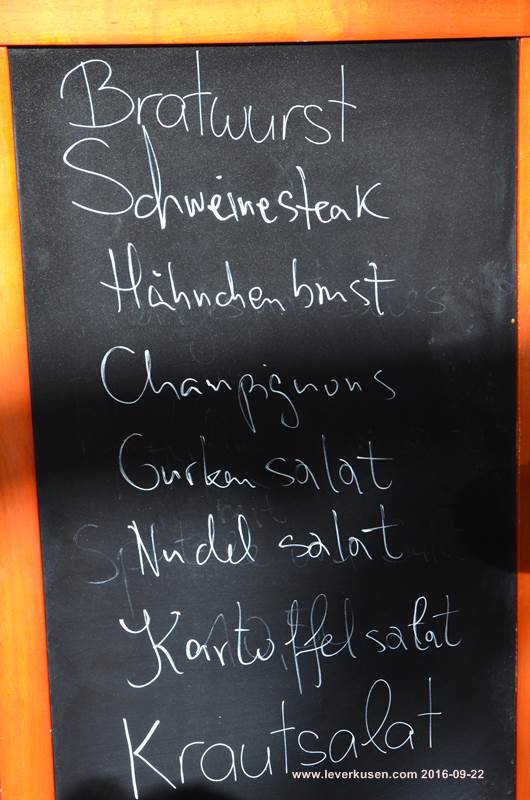 Bratwurst
Schweinesteak
Hähnchenbrust
Champignons
Gurkensalat
Nudelsalat
Kartoffelsalat
Krautsalat
www.leverkusen.com 2016-09-22